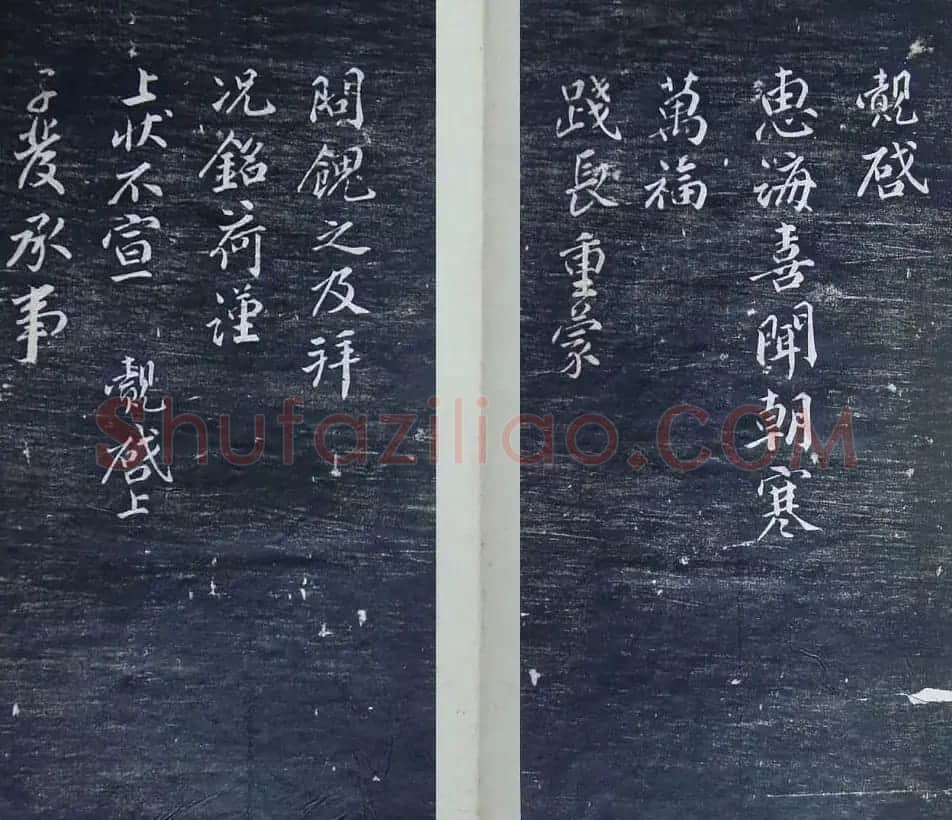 覿啓
惠誨喜聞朝寒
萬福
踐長重蒙
問餽之及拜
况銘荷謹
上狀不宣 覿啓上
子發承事
Shufaziliao.COM